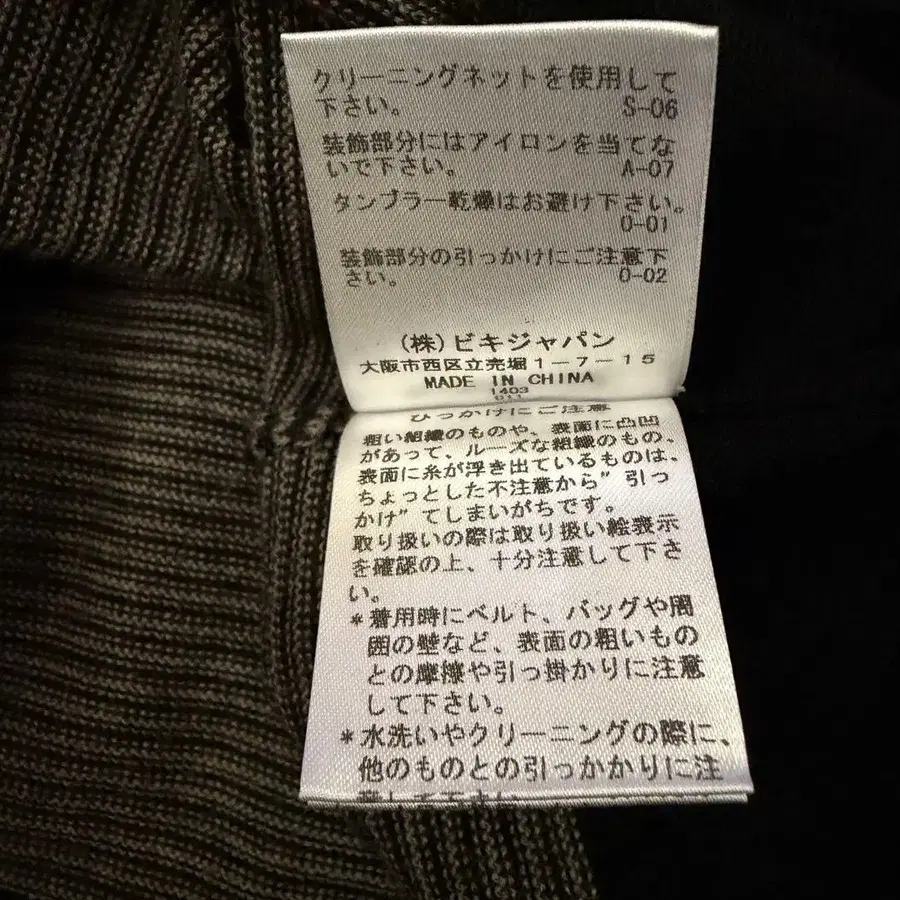 クリーニングネットを使用して
下さい。 S-06
装飾部分にはアイロンを当てな
いで下さい。 A-07
タンブラー乾燥はお避け下さい。
O-01
装飾部分の引っかけにご注意下
さい。 O-02
(株)ビキジャパン
大阪市西区立売堀1-7-15
MADE IN CHINA
1403
011
ひっかけにご注意
粗い組織のものや、表面に凸凹
があって、ルーズな組織のもの、
表面に糸が浮き出ているものは、
ちょっとした不注意から”引っ
かけ”てしまいがちです。
取り扱いの際は取り扱い絵表示
を確認の上、十分注意して下さ
い。
*着用時にベルト、バッグや周
囲の壁など、表面の粗いもの
との摩擦や引っ掛かりに注意
して下さい。
*水洗いやクリーニングの際に、
他のものとの引っかかりに注
意して下さい